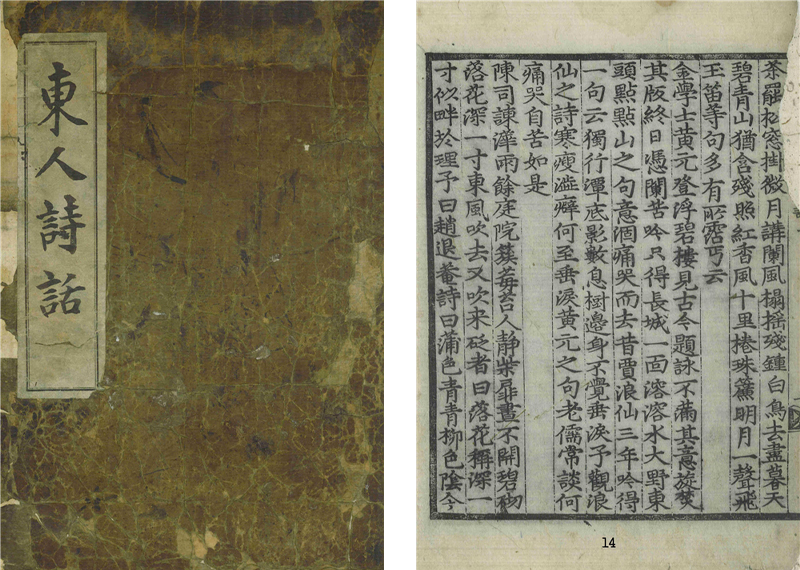 東人詩話
茶罷松窓掛微月講闌風榻揺殘鍾白鳥去盡暮天
碧青山猶含殘照紅香風十里捲珠簾明月一聲飛
玉笛等句多有所霑丐云
金學士黃元登浮碧樓見古今題詠不滿其意旋焚
其版終日憑闌苦吟只得長城一面溶溶水大野東
頭點點山之句意涸痛哭而去昔賈浪仙三年吟得
一句云獨行潭底影數息樹邊身不覺垂淚予觀浪
仙之詩寒瘦澁癖何至垂淚黃元之句老儒常談何
痛哭自苦如是
陳司諫澕雨餘庭院簇莓苔人静柴扉晝不開碧砌
落花深一寸東風吹去又吹来砭者曰落花稱深一
寸似畔於理予曰趙退菴詩曰蒲色青青柳色陰今
14